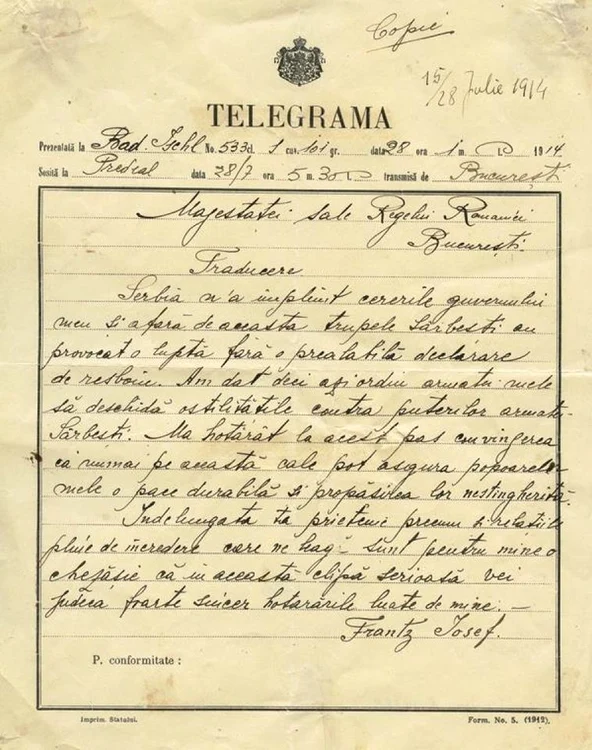 Copie
15/28 Julie 1914
TELEGRAMA
Prezentată la Bad. Ischl No. 533 cl. 1 cuv. 101 gr. data 28 ora 1 m. 1914
Sosită la Predeal data 28/7 ora 5 m. 30 transmisă de București
Majestatei sale Regelui Romaniei
București.
Traducere
Serbia n'a împlinit cererile guvernului
meu si afară de aceasta trupele sârbesti au
provocat o luptă fără o prealabilă declarare
de resboiu. Am dat deci azi ordin armatei mele
să deschidă ostilitățile contra puterilor armate
sârbesti. Ma hotărât la acest pas convingerea
că numai pe această cale pot asgura popoarelor
mele o pace durabilă si propășirea lor nestingherită.
Indelungata ta prietenie precum si relatiile
pline de incredere care ne leagă sunt pentru mine o
chezăsie că in această clipă serioasă vei
judeca foarte sincer hotarârile luate de mine. —
Frantz Iosef.
P. conformitate :
Imprim. Statului. Form. No. 5. (1912).